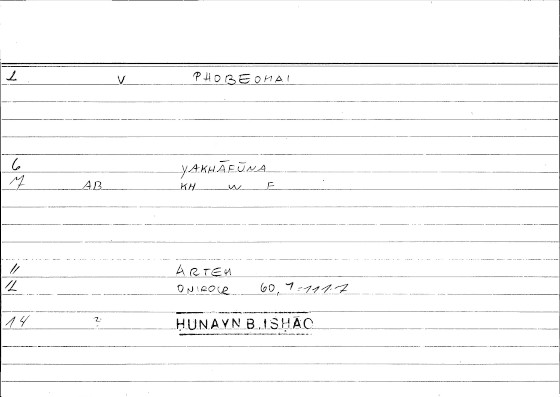 1 V PHOBEOMAI
6 YAKHĀFŪNA
7 AB KH W F
11 ARTEM
12 ONIROCR 60,
14 ? HUNAYN B. ISHĀQ